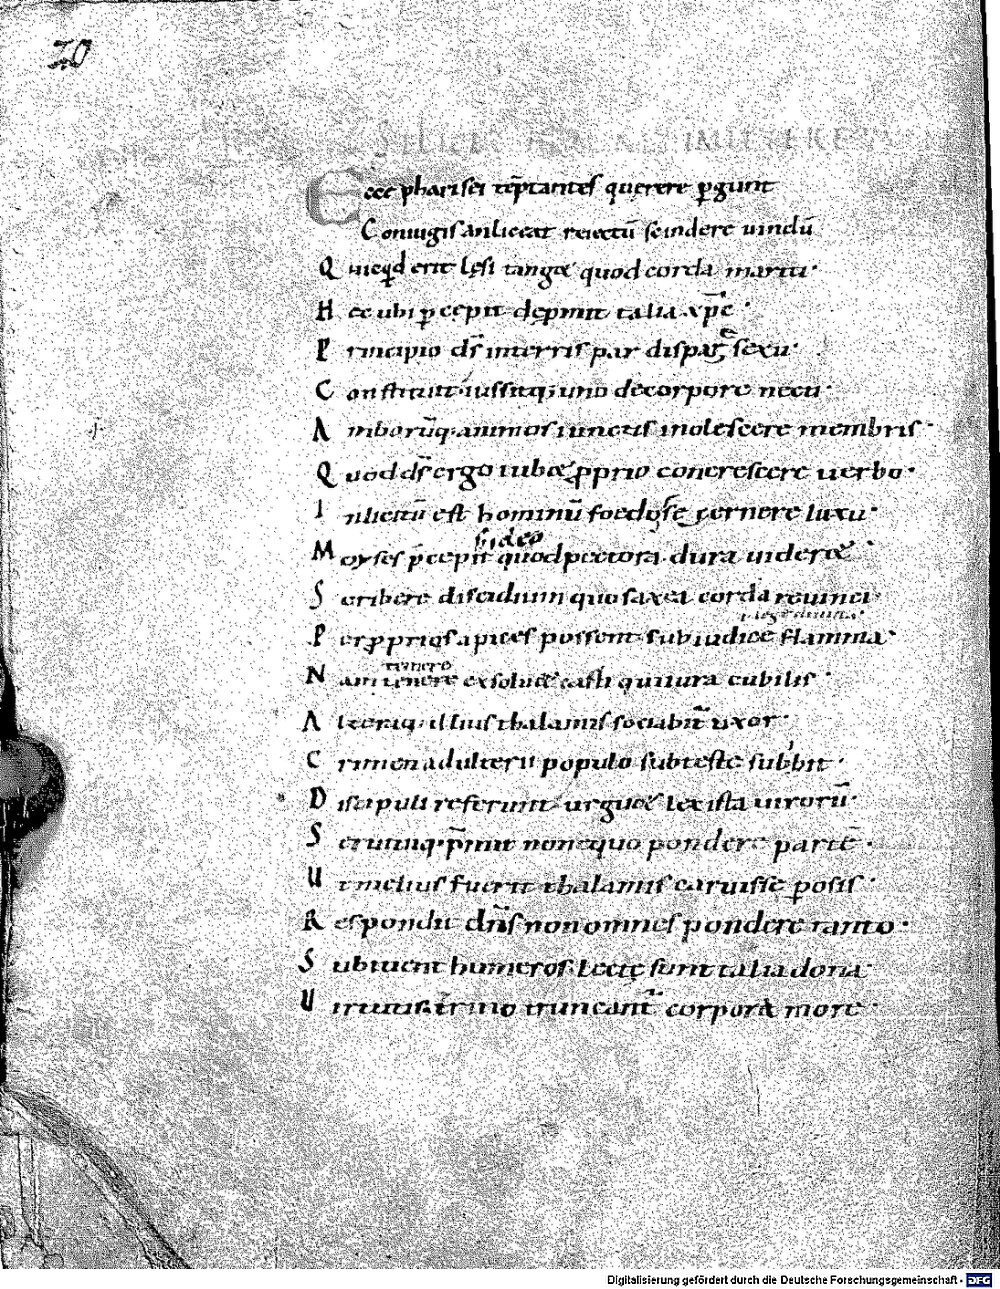 20
SI LICET HOMINI DIMITTERE UXOREM
Ecce pharisei tēptantes querere ꝑgunt
Coniugis anliceat reiectū scindere uinclū
Quicq̄d erit lęsi tangæ quod corda mariti·
Hec ubi ꝑcepit depmit talia xp̄c·
Principio ds̄ interris par dispar ę sexu·
Constituit· iussitq; uno decorpore necti·
Amborūq· animos iunctis inolescere membris·
Quod ds̄ ergo iubæ ꝓprio concrescere uerbo·
Inlicitū est hominū foedose cernere luxu·
ideo
Moyses p̄cepit quod pectora dura uideræ·
Scribere discidium quo saxea corda reuinci·
legitima
Perꝓprios apices possent sub iudice flamma·
temere
Nam temere exsoluæ casti qui iura cubilis·
Alteriq· illius thalamis sociabit̄ uxor·
Crimen adulterii populo subteste subbit·
Discipuli referunt· urguæ lex ista uirorū·
Seruitiūq· p̄mit non equo pondere partē·
Ut melius fuerit thalamis caruisse ꝓosis·
Respondit dn̄s non omnes pondere tanto·
Subicient humeros· Lectę sunt talia dona·
Uirtutis· trino truncant̄ corpora more·
Digitalisierung gefördert durch die Deutsche Forschungsgemeinschaft - DFG